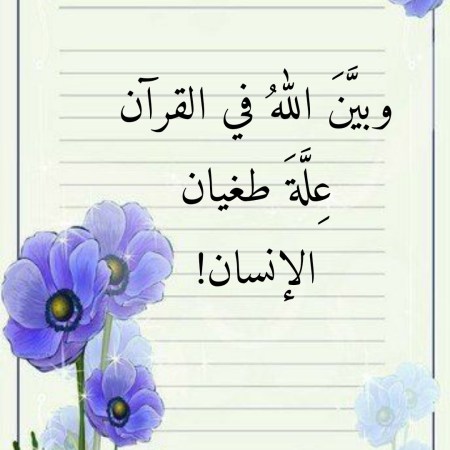 وبيَّنَ اللهُ في القرآن
عِلَّةَ طغيان
الإنسان!